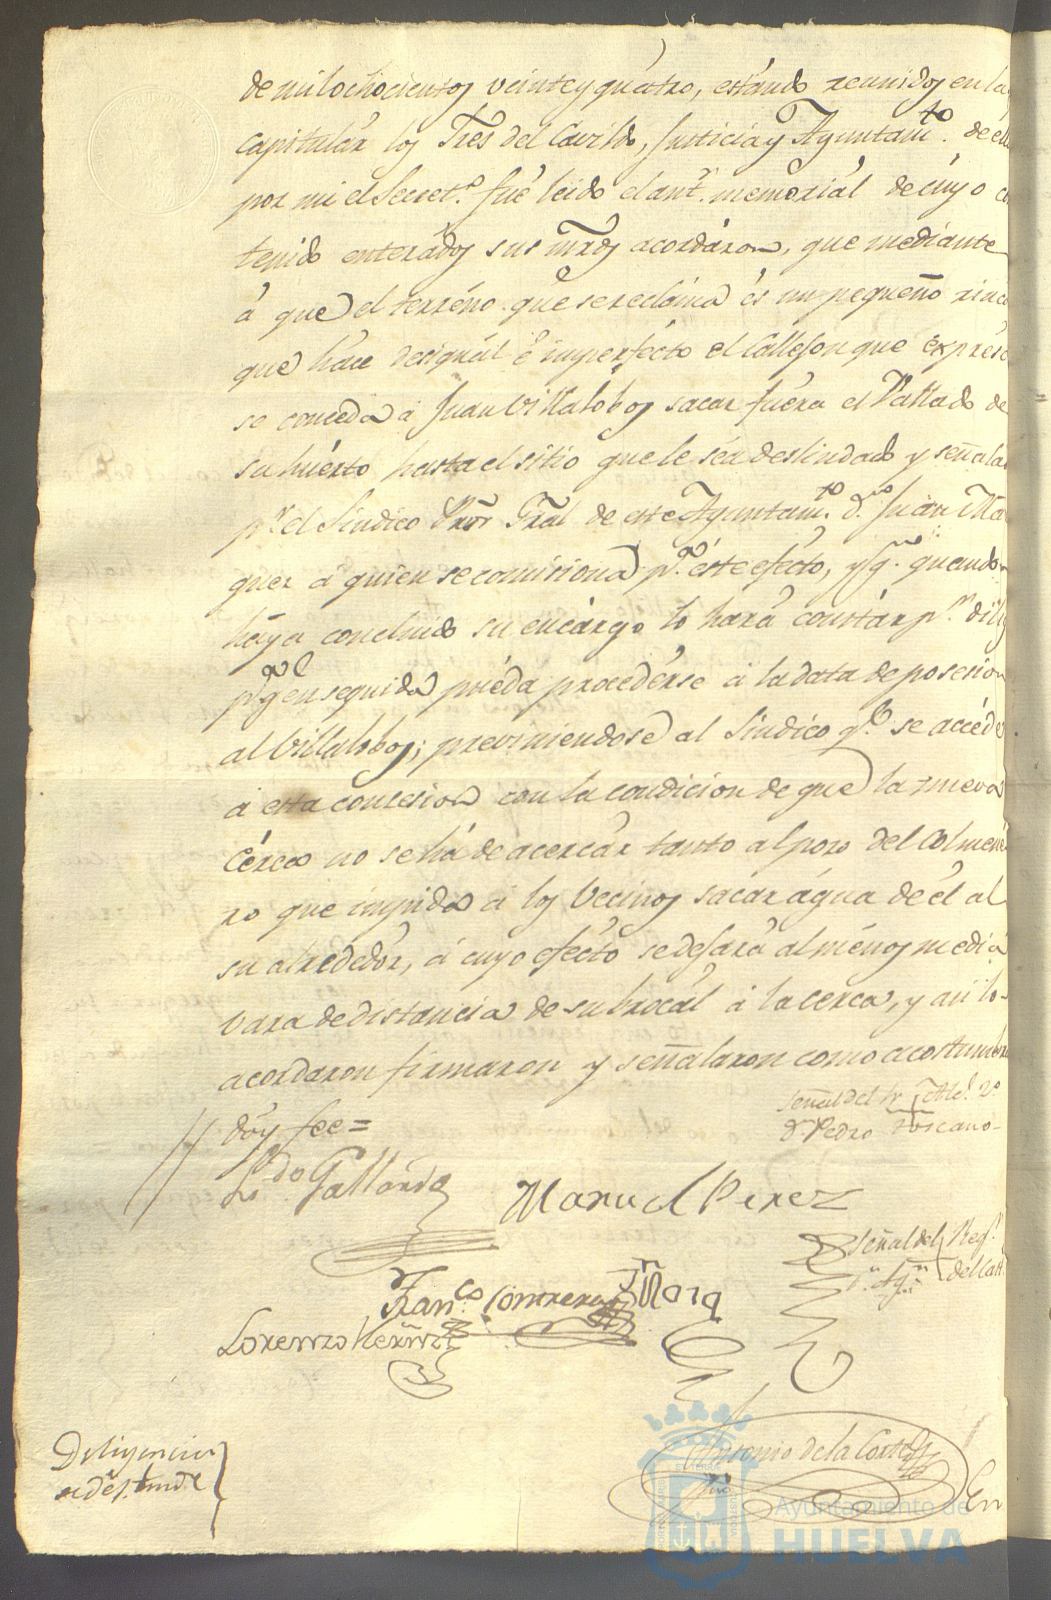 de mil ochocientos veinte y quatro, estando reunidos en la
capitular los Sres del Cavildo, Justicia y Ayuntam.to de ella
por mi el Secret.o fue leido el ant.r memorial de cuyo con
tenido enterados sus mrds acordaron, que mediante
á que el terréno que se reclama és un pequeño rinco
que hace desiguál é imperfécto el Callejon que expresa
se conceda á Juan Villalobos sacar fuéra el Vallado de
su huérto hasta el sitio que le séa deslindado y señala
p.r el Sindico Pror Gral de este Ayuntam.to D.n Juan Mar
quez á quien se comisiona p.a éste efécto, y q.e quando
háya concluido su encárgo lo hará constár p.r dilig
p.a q.e en seguida puéda procedérse á la data de posesion
al Villalobos; previniendose al Sindico q.e se accéde
á esta concesion con la condicion de que la nueva
cérca no se há de acercár tanto al pozo del Colmené
ro que impida á los Vecinos sacar água de él al
su alrededór, á cuyo efécto se dejará al ménos media
vara de distancia de su brocál á la cerca, y asi lo
acordaron firmaron y señalaron como acostumbra
doy fee=
Señal del Sr Alc.e 2.o
D.n Pedro Toscano
L.do Gallardo
Manuel Perez
Señal del Reg.r
del Cast
Fran.co Contreras
Jn Marq
Lorenzo Hernz
Antonio de la Corte
Srio
Diligencia
de deslinde
En
Ayuntamiento de
HUELVA